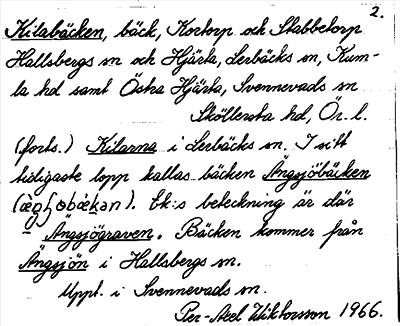 2.
Kilabäcken, bäck, Kortorp och Stabbetorp
Hallsbergs sn och Hjärta, Lerbäcks sn, Kum-
la hd samt Östra Hjärta, Svennevads sn
Sköllersta hd, Ör. l.
(forts.) Kilarna i Lerbäcks sn. I sitt
tidigaste lopp kallas bäcken Ängsjöbäcken
Ek:s beteckning är där
Ängsjögraven. Bäcken kommer från
Ängsjön i Hallsbergs sn.
Uppt. i Svennevads sn.
Per-Axel Wiktorsson 1966.